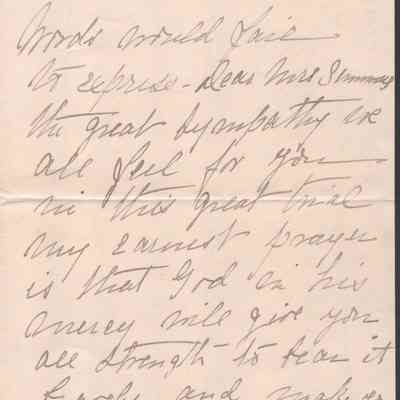 Words would fail
to express - Dear Mrs Simmons
the great sympathy we
all feel for you
in this great trial
my earnest prayer
is that God in his
mercy will give you
all strength to bear it
and